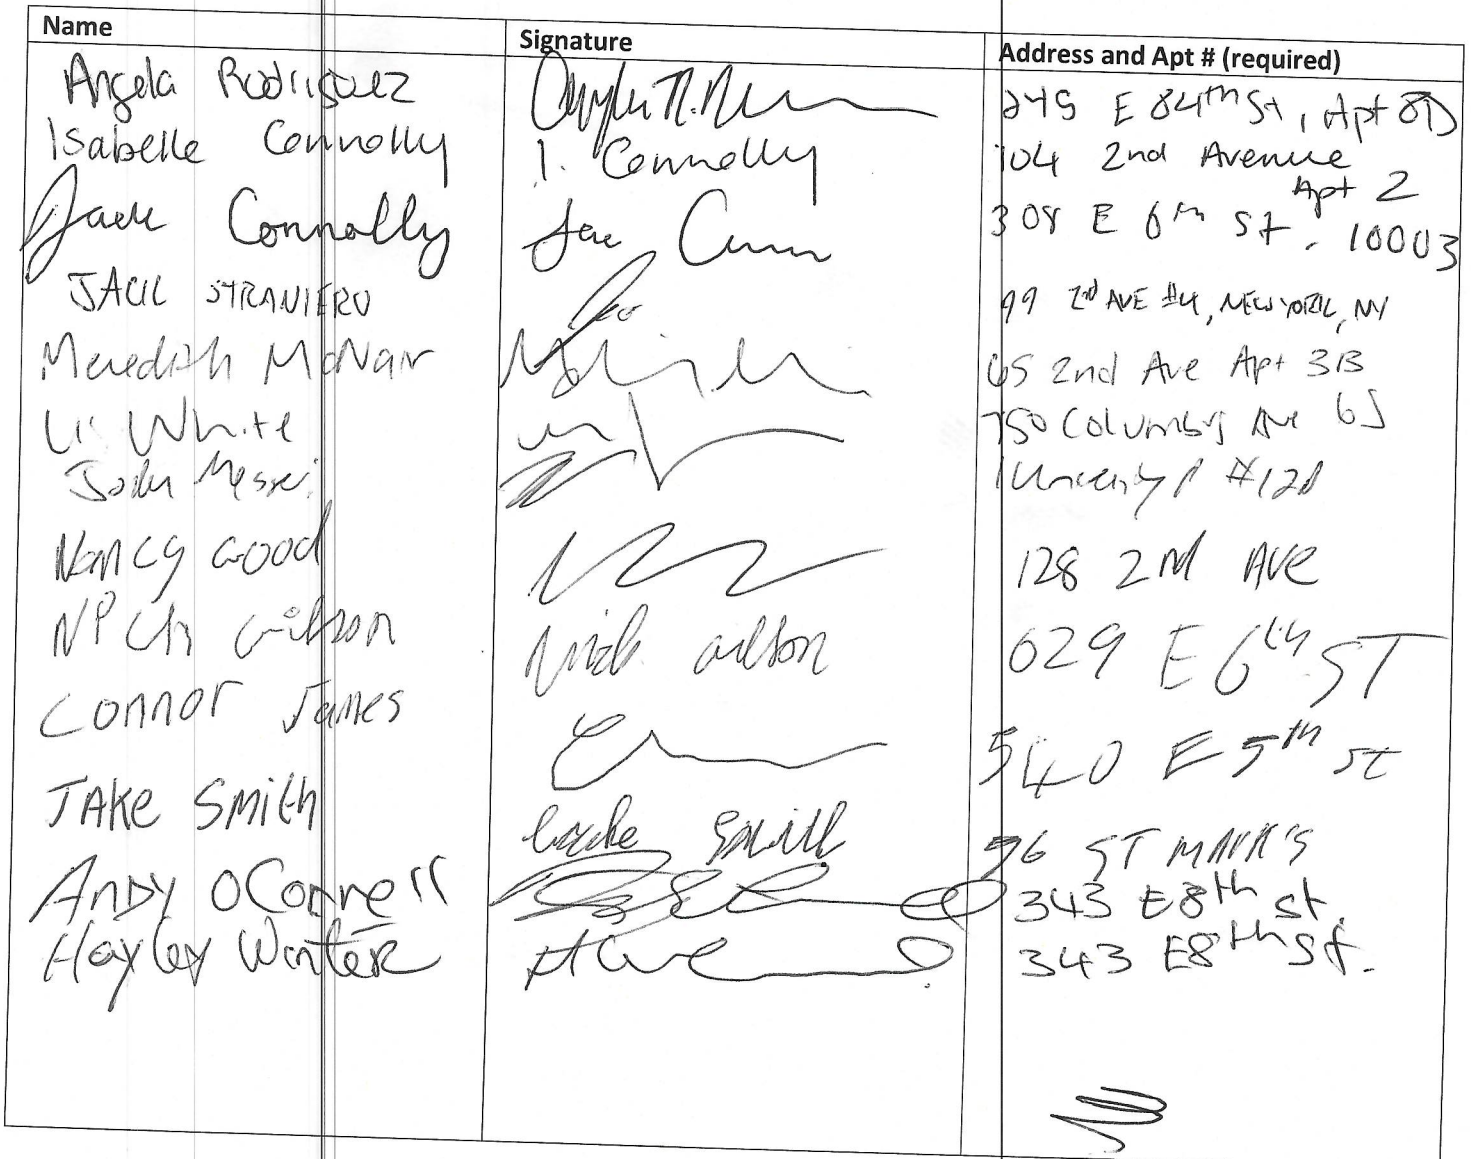 Name Signature Address and Apt # (required)
Angela Rodriguez 245 E 84th St, Apt 8D
Isabelle Connolly I. Connolly 104 2nd Avenue Apt 2
Jack Connolly 308 E 6th St. 10003
JACK STRANIERO 99 2nd AVE #4, NEW YORK, NY
Meredith McNair 65 2nd Ave Apt 3B
White 750 Columbus Ave 6J
Nancy Good 128 2nd AVE
Nick Wilson 629 E 6th ST
Connor James 540 E 5th st
JAKE Smith Smith 96 ST MARK'S
ANDY OConnell 343 E8th st.
Hayley Winter 343 E8th St.